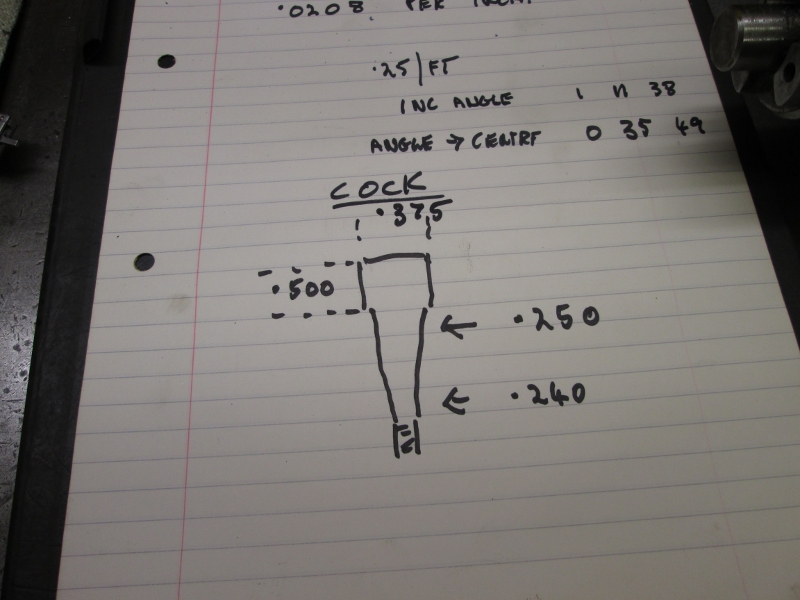 .0208 PER INCH
.25/FT
INC ANGLE 1 11 38
ANGLE → CENTRE 0 35 49
COCK
.375
.500
← .250
← .240